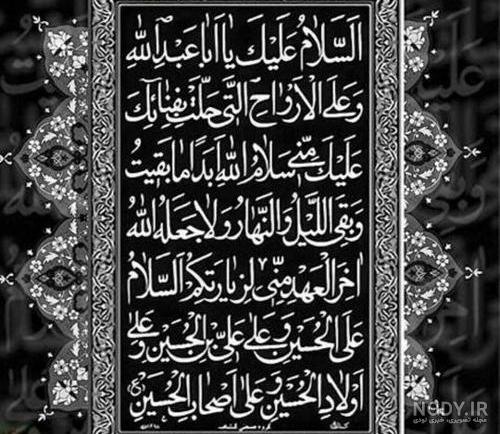 اَلسَّلامُ عَلَيْكَ يا اَبا عَبْدِ اللهِ
وَ عَلَى الْاَرْواحِ الَّتي حَلَّتْ بِفِنائِكَ
عَلَيْكَ مِنّي سَلامُ اللهِ اَبَداً ما بَقيتُ
وَ بَقِيَ اللَّيْلُ وَ النَّهارُ وَ لا جَعَلَهُ اللهُ
اخِرَ الْعَهْدِ مِنّي لِزِيارَتِكُمْ اَلسَّلامُ
عَلَى الْحُسَيْنِ وَ عَلى عَلِيِّ بْنِ الْحُسَيْنِ وَ عَلى
اَوْلادِ الْحُسَيْنِ وَ عَلى اَصْحابِ الْحُسَيْنِ
گروه صنعتی
N@DY.IR
مجله تصویری، خبری نودی